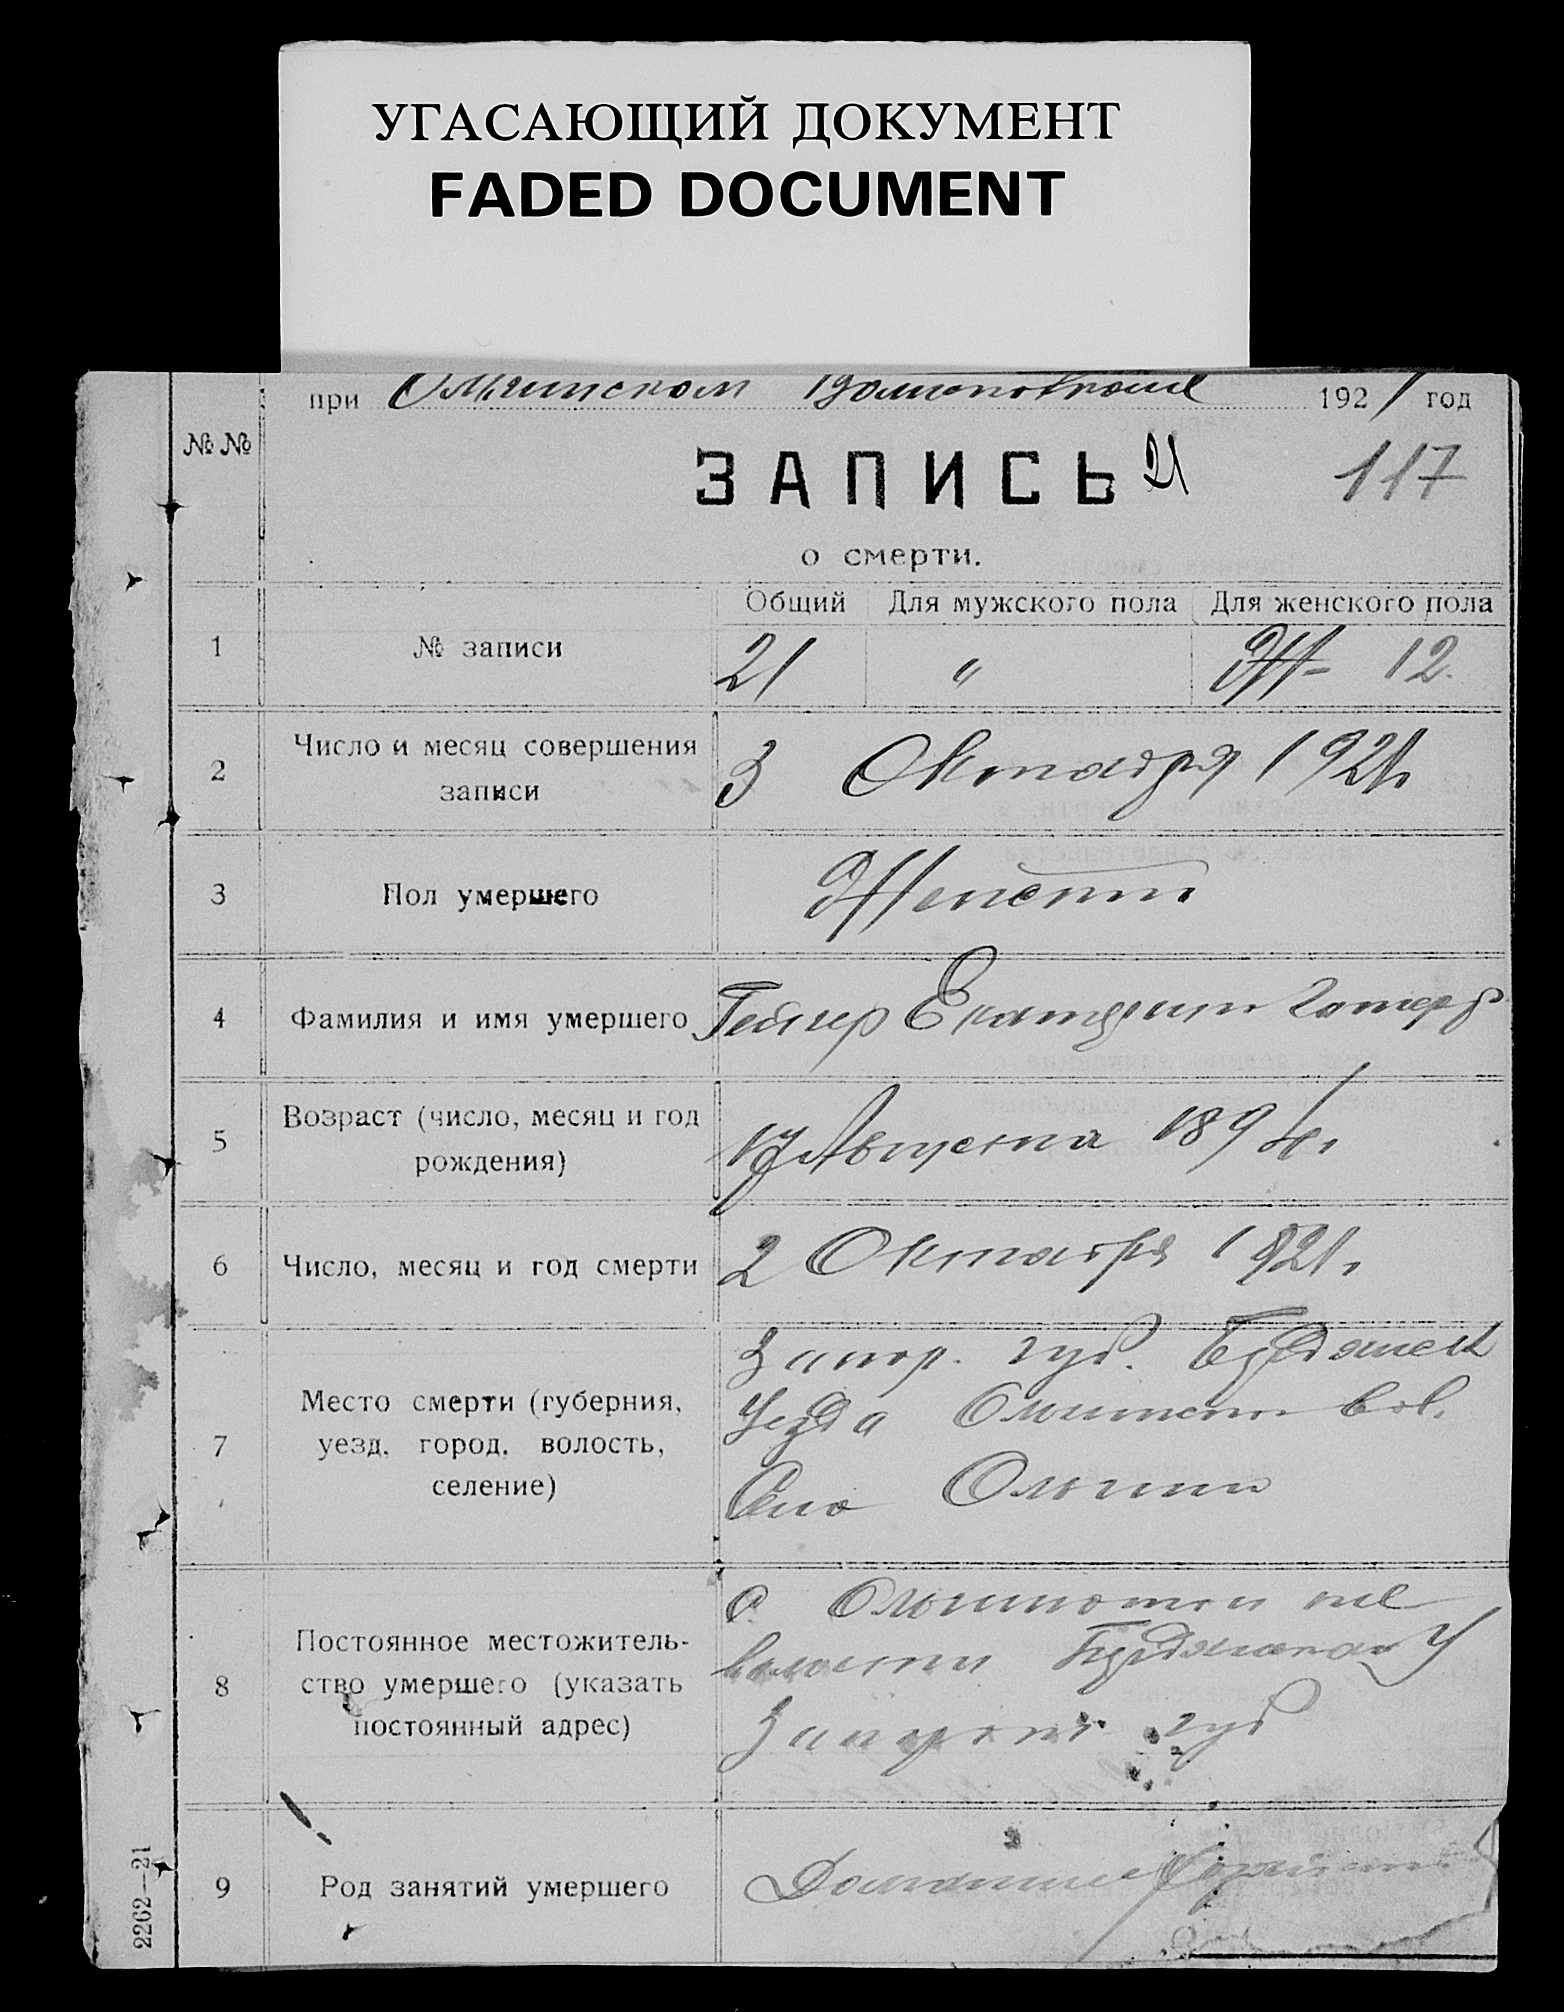 УГАСАЮЩИЙ ДОКУМЕНТ
FADED DOCUMENT
при 1921 год
№ №
ЗАПИСЬ 21 117
о смерти.
Общий Для мужского пола Для женского пола
1 № записи 21 " 12.
2 Число и месяц совершения записи 3 Октября 1921г.
3 Пол умершего Женский
4 Фамилия и имя умершего Гейгер Екатерин
5 Возраст (число, месяц и год рождения) 17 Августа 189
6 Число, месяц и год смерти 2 Октября 1921г.
7 Место смерти (губерния, уезд, город, волость, селение)
Запор. губ. Бердянск
Уезда вол.
Село
8 Постоянное местожительство умершего (указать постоянный адрес)
с.
волости У
губ
9 Род занятий умершего Домашнее
2262—21